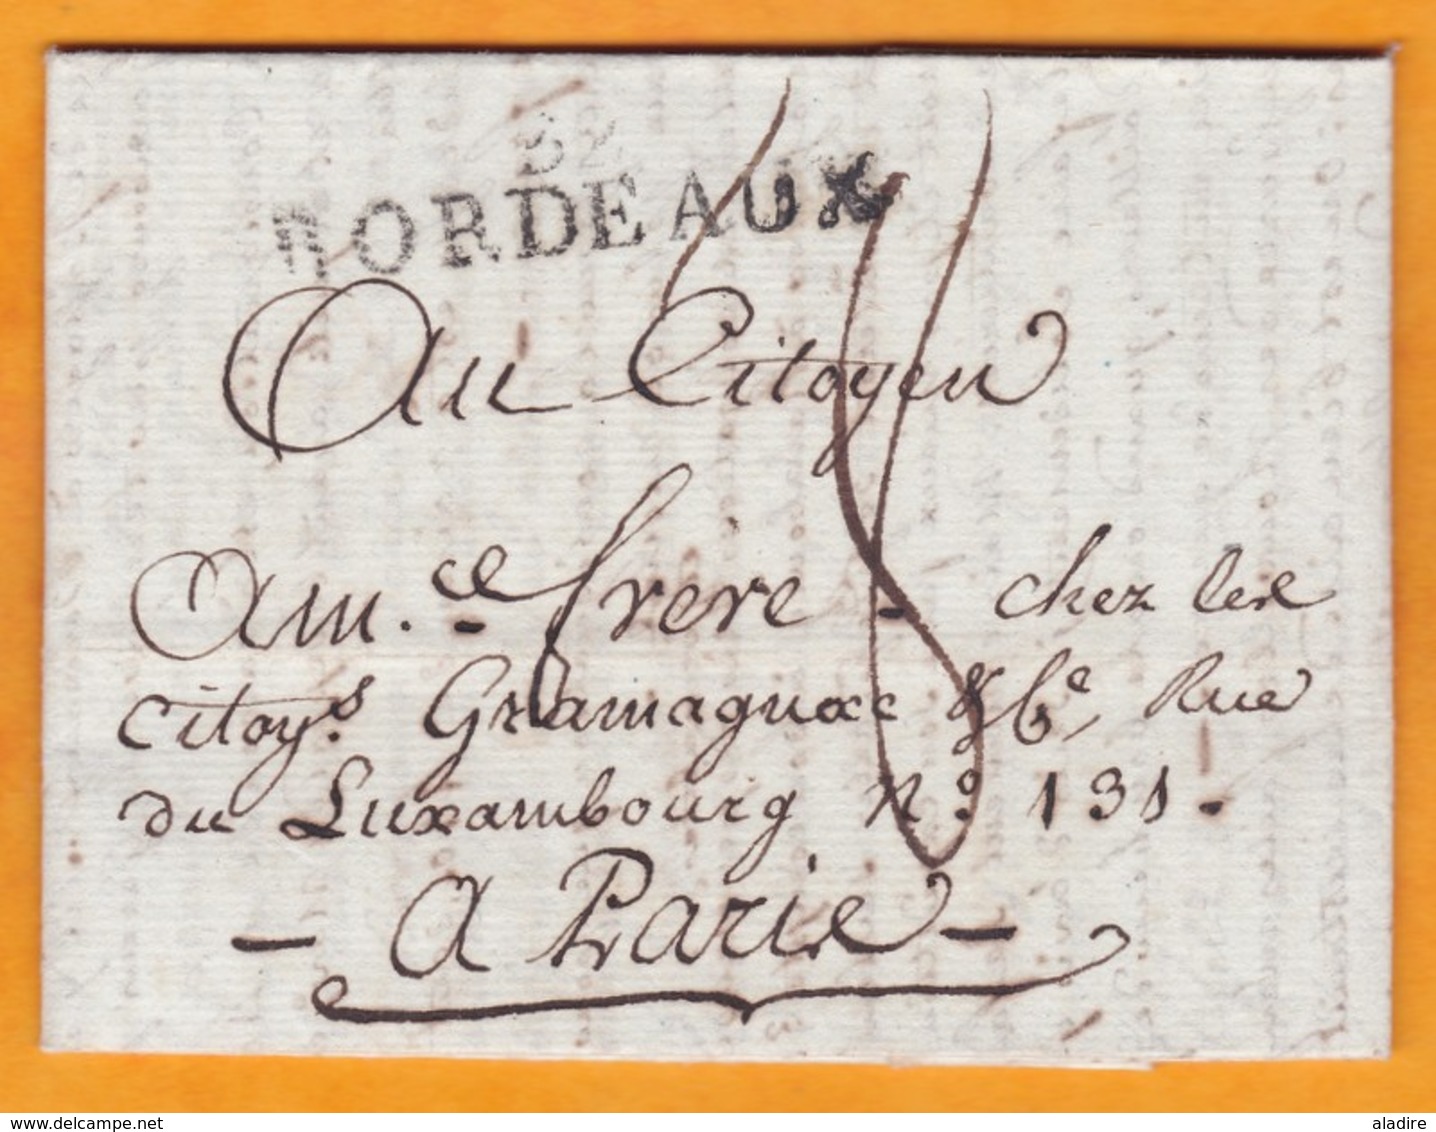 32
BORDEAUX
Au Citoyen
Am.ce frère - chez les
Citoy.s Gramagnac & Ce, Rue
du Luxambourg N.o 131.
- A Paris -
www.delcampe.net
aladire